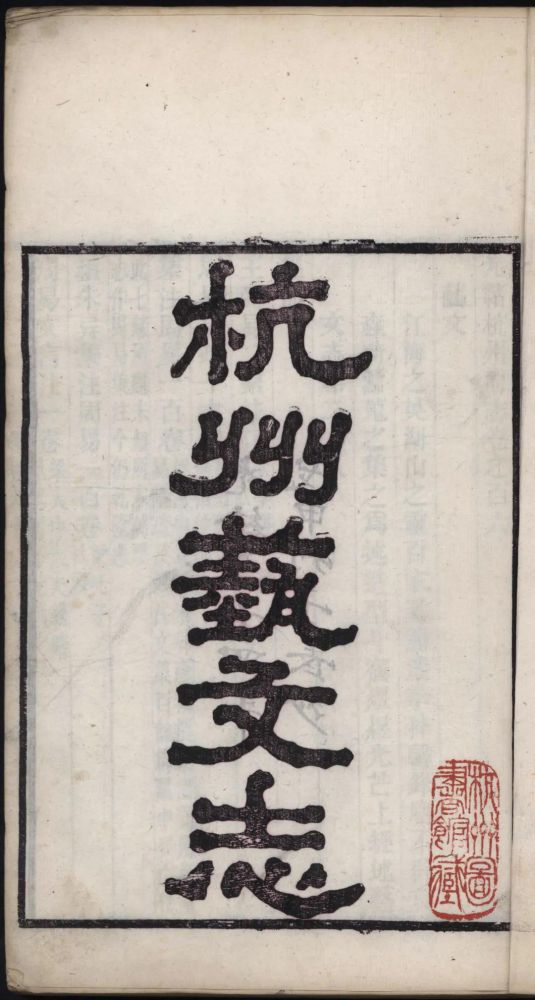 杭州藝文志
杭州圖
書館藏